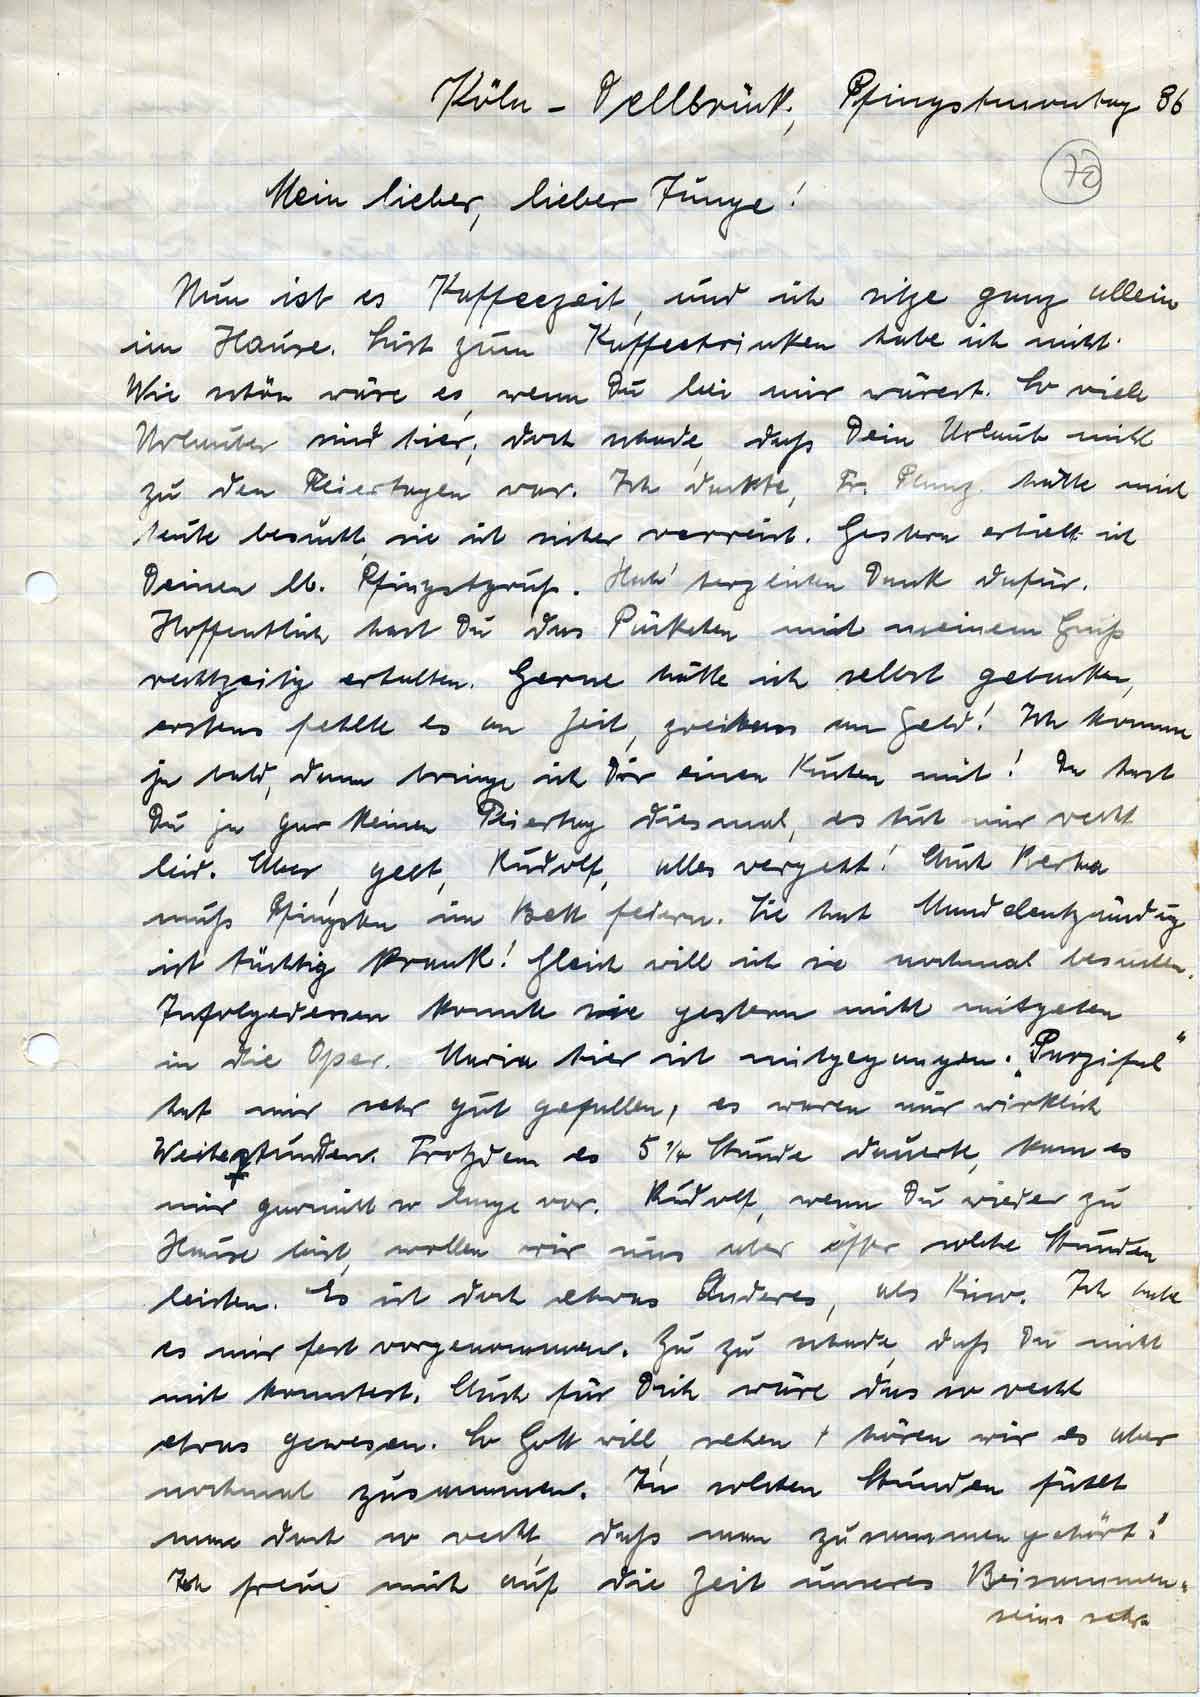 Köln - Dellbrück, Pfingstmontag 36
70
Mein lieber, lieber Junge!
Nun ist es Kaffeezeit, und ich sitze ganz allein
im Hause. Lust zum Kaffeetrinken habe ich nicht.
Wie schön wäre es, wenn Du bei mir wärest. So viele
Urlauber sind hier, doch schade, daß Dein Urlaub nicht
zu den Feiertagen war. Ich dachte, Fr. hätte mich
heute besucht, sie ist sicher verreist. Gestern erhielt ich
Deinen lb. Pfingstgruß. Hab' herzlichen Dank dafür.
Hoffentlich hast Du das Päckchen mit meinem Gruß
rechtzeitig erhalten. Gerne hätte ich selbst gebacken,
erstens fehlte es an Zeit, zweitens an Geld! Ich komme
ja bald, dann bringe ich Dir einen Kuchen mit! Da hast
Du ja gar keinen Feiertag diesmal, es tut mir recht
leid. Aber, gelt, Rudolf, alles vergeht! Auch Berta
muß Pfingsten im Bett feiern. Sie hat Mandelentzündung
ist tüchtig krank! Gleich will ich sie nochmal besuchen.
Infolgedessen konnte sie gestern nicht mitgehen
in die Oper. Maria hier ist mitgegangen. "Parzifal"
hat mir sehr gut gefallen, es waren mir wirklich
Weihestunden. Trotzdem es 5 1/4 Stunde dauerte, kam es
mir garnicht so lange vor. Rudolf, wenn Du wieder zu
Hause bist, wollen wir uns aber öfter solche Stunden
leisten. Es ist doch etwas Anderes, als Kino. Ich habe
es mir fest vorgenommen. Zu zu schade, daß Du nicht
mit konntest. Auch für Dich wäre das so recht
etwas gewesen. So Gott will, sehen + hören wir es aber
nochmal zusammen. In solchen Stunden fühlt
man doch so recht, daß man zusammengehört!
Ich freue mich auf die Zeit unseres Beisammen-
seins sehr